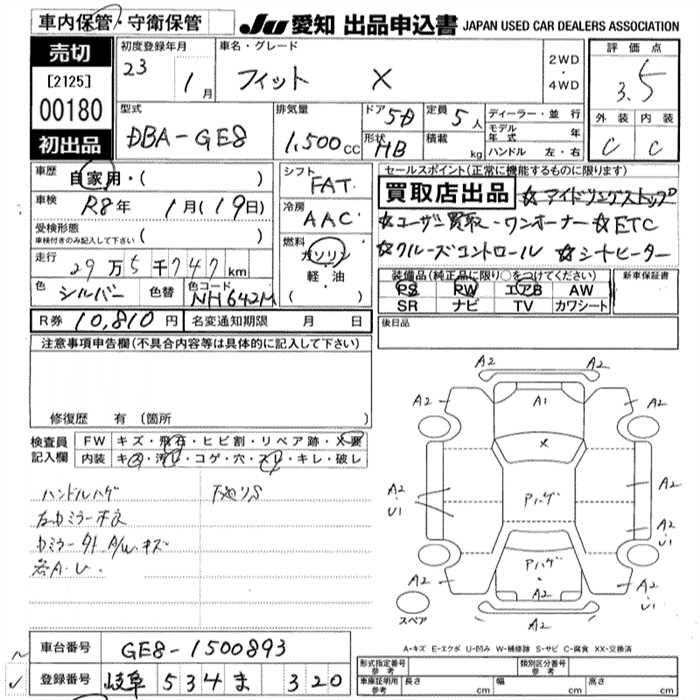 車内保管・守衛保管
JU 愛知 出品申込書 JAPAN USED CAR DEALERS ASSOCIATION
売切
[2125]
00180
初出品
初度登録年月
23
1月
車名・グレード
フィット X
2WD
・
4WD
評価点
3.5
外装 内装
C C
型式
DBA-GE8
排気量
1,500cc
ドア
5D
形状
HB
定員
5人
積載
kg
ディーラー・並行
モデル年式 年
ハンドル 左・右
車歴
自家用・( )
車検
R8年 1月(19日)
受検形態
車検付きのみ記入して下さい ( )
走行
29万5千747km
色
シルバー
色替
色コード
NH642M
シフト
FAT
冷房
AAC
燃料
ガソリン
軽・油
( )
セールスポイント(正常に機能するものに限ります)
買取店出品 ☆アイドリングストップ
☆ユーザー買取・ワンオーナー☆ETC
☆クルーズコントロール ☆シートヒーター
装備品(純正品に限り○をつけてください)
PS PW エアB AW
SR ナビ TV カワシート
新車保証書
R券 10,810円
名変通知期限 月 日
後日品
注意事項申告欄(不具合内容等は具体的に記入して下さい)
修復歴 有(箇所 )
検査員記入欄
FW キズ・飛石・ヒビ割・リペア跡・X要
内装 キズ・汚レ・コゲ・穴・スレ・キレ・破レ
ハンドルハゲ
各A・U
A2
A2 A2
A1
X
A2 A2
U1
Pハゲ
A2
U1
Pハゲ
A2 A2
A2
U1
A2
スペア
A-キズ E-エクボ U-凹み W-補修跡 S-サビ C-腐食 XX-交換済
車台番号
GE8-1500893
登録番号
岐阜 534 ま 320
形式指定番号 参考
類別区分番号 参考
車庫証明用 参考
長さ cm
幅 cm
高さ cm